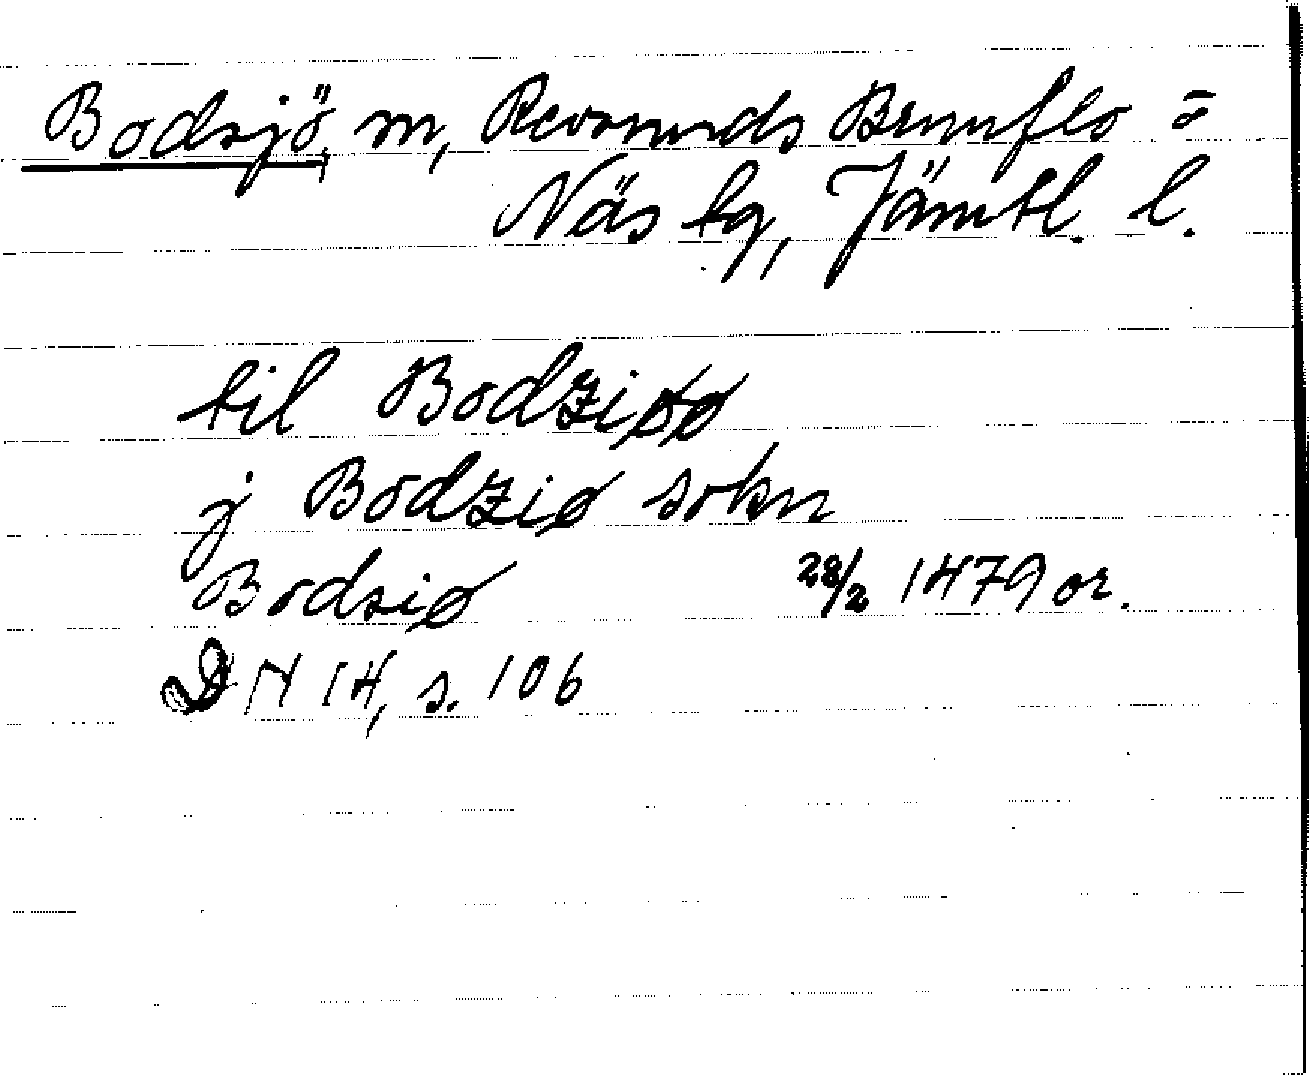 Bodsjö, sn, Revsunds Brunflo =
Näs tg, Jämtl. l.
til Bodziøø
j Bodziø sokn
Bodsiø 28/2 1479 or.
DN 14, s. 106